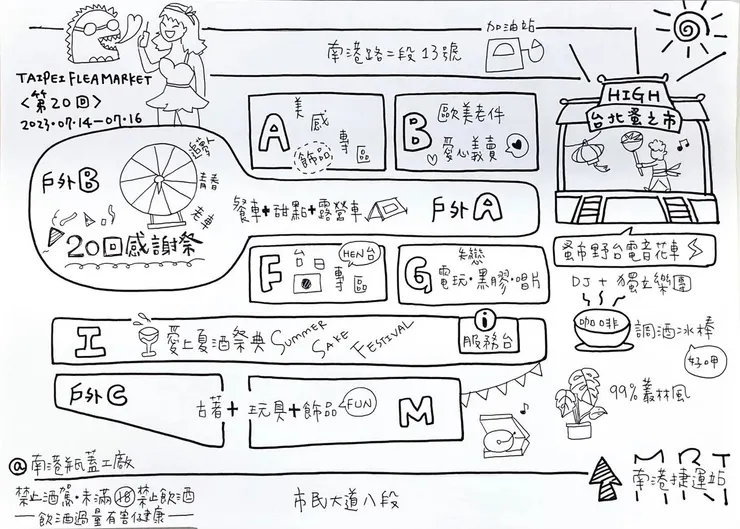 TAIPEI FLEAMARKET
<第20回>
2023.07.14-07.16
加油站
南港路二段13號
HIGH
台北蚤之市
A
美感專區
飾品
B
歐美老件
愛心義賣
戶外B
20回感謝祭
餐車+甜點+露營車
戶外A
F
台日專區
HEN台
G
失戀
電玩·黑膠·唱片
蚤市野台電音花車
DJ+獨立樂團
咖啡
調酒冰棒
好呷
工
愛上夏酒祭典
SUMMER
SAKE
FESTIVAL
i
服務台
戶外C
古著+玩具+飾品
FUN
M
99%叢林風
@南港瓶蓋工廠
禁止酒駕·未滿18禁止飲酒
—飲酒過量有害健康—
市民大道八段
MRT
南港捷運站